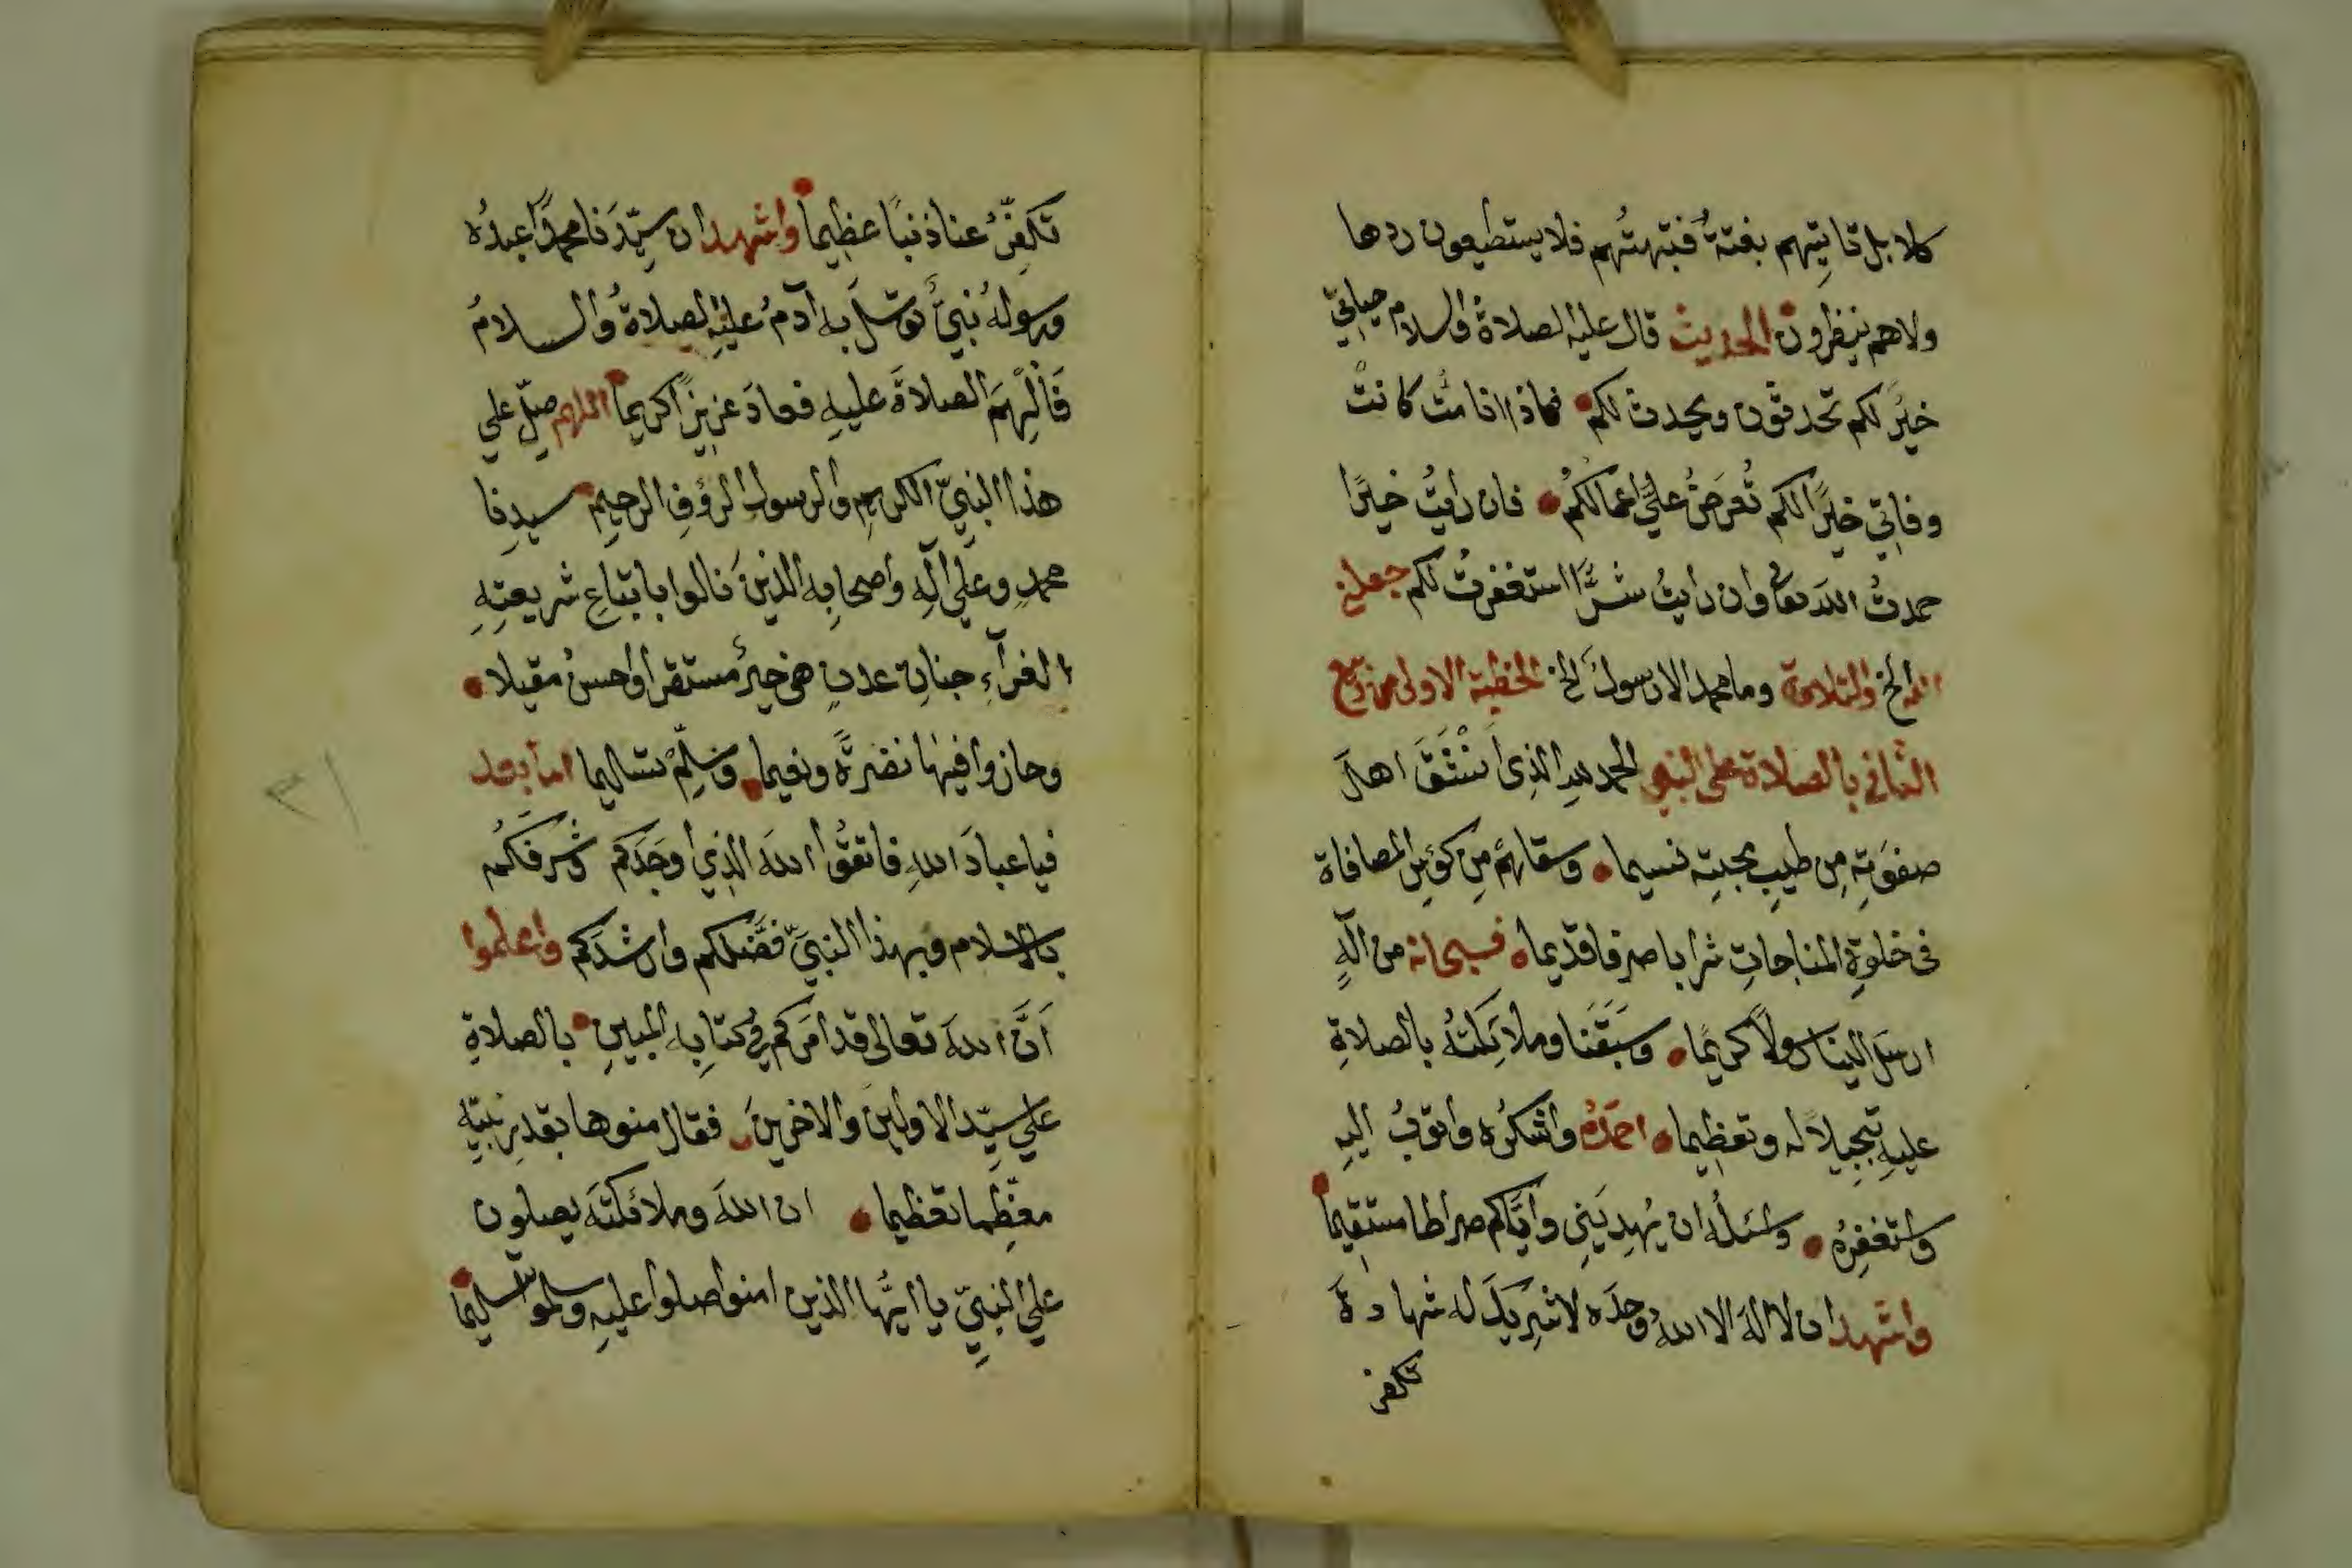 كلا بل تاتيهم بغتةً فتبهتُهم فلا يستطيعون ردها
ولاهم ينظرون الحديث قال عليه الصلاة والسلام حياتي
خيرٌ لكم تحدثون ويحدث لكم فاذا انا مُتّ كانتْ
وفاتي خيرًا لكم تُعرَضُ عليَّ اعمالكمُ فان رايتُ خيرًا
حمدتُ اللهَ تعالى وان رايتُ شرًّا استغفرتُ لكم جعلني
الله الخ والتلاوة وما محمد الا رسولٌ الخ الخطبة الاولى من ربيع
الثاني بالصلاة على النبي الحمد لله الذي اَنْشَقَ اهلَ
صفوَتِه مِن طيبِ محبتِه نسيما وسقاهُم مِن كؤسِ المصافاة
في خلوةِ المناجاتِ شرابا صرفا قديما فسبحانه من الٓهٍ
ارسَلَ الينا رسولًا كريمًا وسَبَقَنا وملائِكتُه بالصلاةِ
عليهِ تبجيلًا له وتعظيما احمَدُهُ واشكرُه واتوبُ اليهِ
واستغفِرُه واسئلُه ان يُهدِيَني وايَّاكم صراطا مستقيماً
واشهد ان لا الهَ الا اللهُ وحدَه لا شريكَ له شهادةً
تكفر
تكفِّرُ عنا ذنبًا عظيما واشهد ان سيِّدَنا محمدًا عبدُه
ورسولُه نبيٌّ توسَّلَ به آدمُ عليهِ الصلاةُ والسلامُ
فَاُلْهِمَ الصلاةَ عليهِ فعادَ عزيزًا كريما اللهم صلِّ على
هذا النبيّ الكريمِ والرسولِ الرؤفِ الرحيمِ سيدِنا
محمدٍ وعلَى آلِهِ واصحابِه الذينَ نالوا باتباعِ شريعتِهِ
الغرآءِ جناتِ عدنٍ هي خيرٌ مستقرا واحسنُ مقيلا
وحازوا فيها نضرةً ونعيما وسلِّمْ تسليما اما بعد
فيا عبادَ اللهِ فاتقُوا اللهَ الذي اوجَدَكم وشرفَكُم
بالاسلام وبهذا النبيّ فضَّلكم وارشدَكم واعلموا
اَنَّ اللهَ تعالى قد امَرَكم في كتابِه المبينِ بالصلاةِ
على سيِّد الاولين والاخرينَ فقال منوها بقدرِ نبيّه
معَظِّما تعظيما ان اللهَ وملائكتَه يصلون
على النبيِّ يا ايُّها الذين امنوا صلوا عليهِ وسلموا تسليماً
٣١